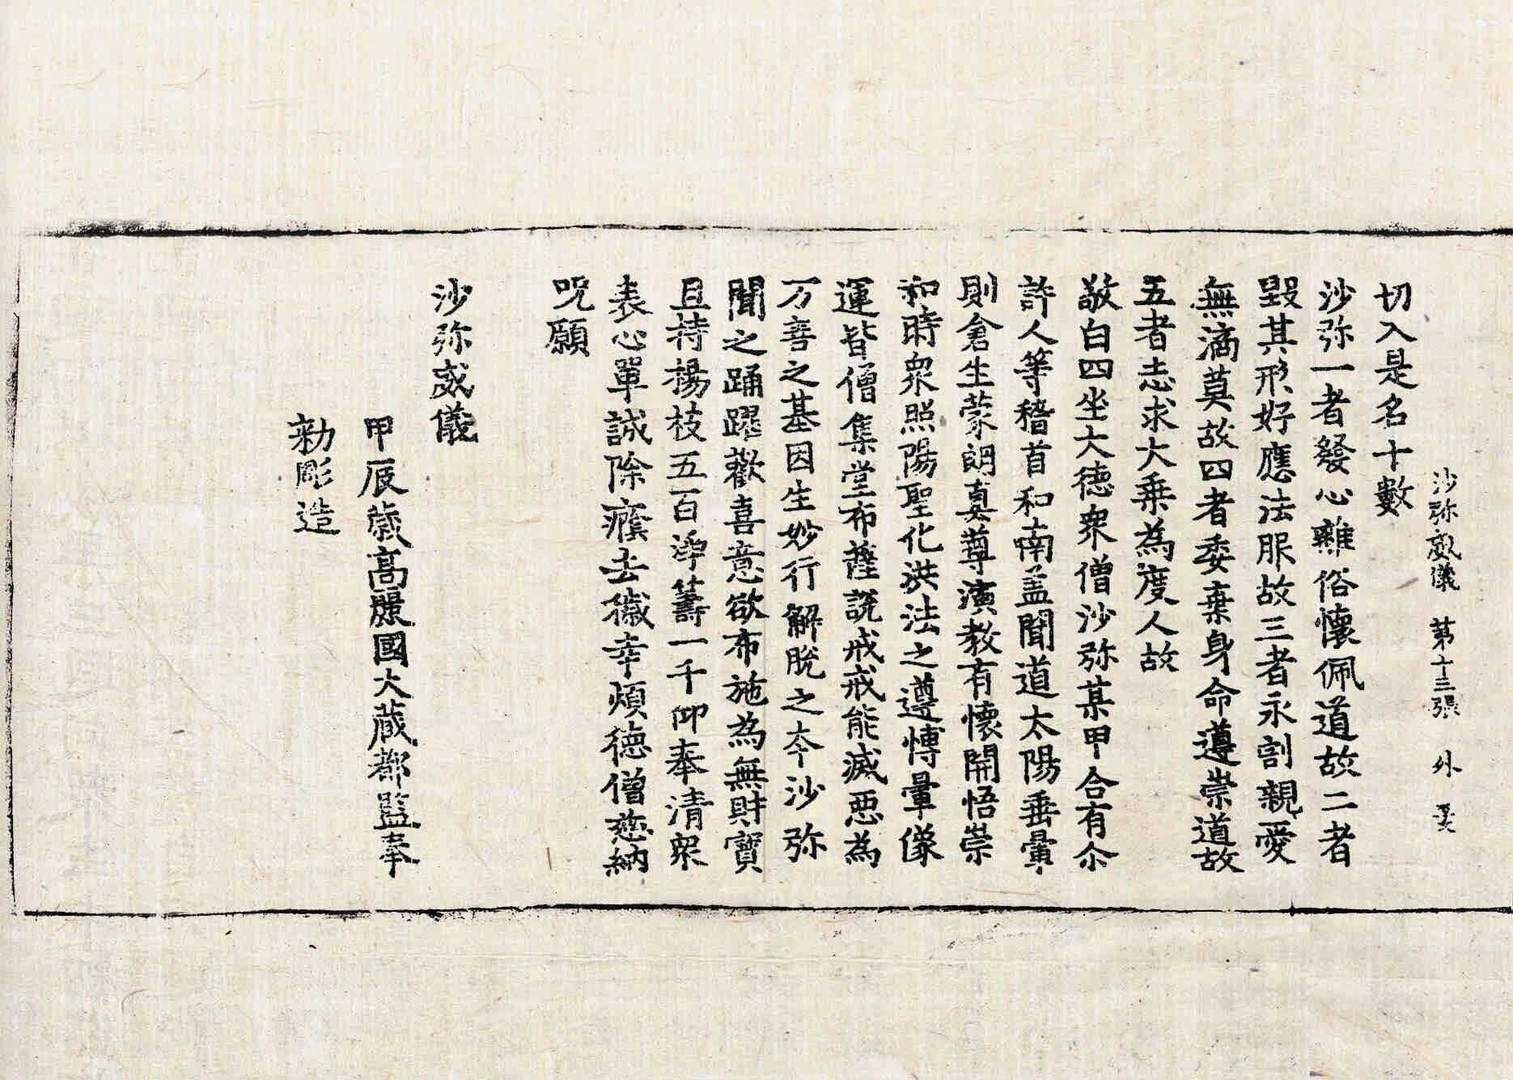 沙弥威儀 第十三張 外受
切入是名十數
沙弥一者發心離俗懷佩道故二者
毀其形好應法服故三者永割親愛
無適莫故四者委棄身命遵崇道故
五者志求大乘為度人故
敬白四坐大德衆僧沙弥某甲合有尒
許人等稽首和南盖聞道太陽垂暈
則倉生蒙朗真尊演教有懷開悟崇
和時衆照陽聖化洪法之遵愽暈像
運皆僧集堂布薩說戒戒能滅惡為
万善之基因生妙行解脫之本今沙弥
聞之踊躍歡喜意欲布施為無財寶
且持楊枝五百淨籌一千仰奉清衆
表心單誠除癡去穢幸煩德僧慈納
呪願
沙弥威儀
甲辰歲高麗國大蔵都監奉
勅彫造